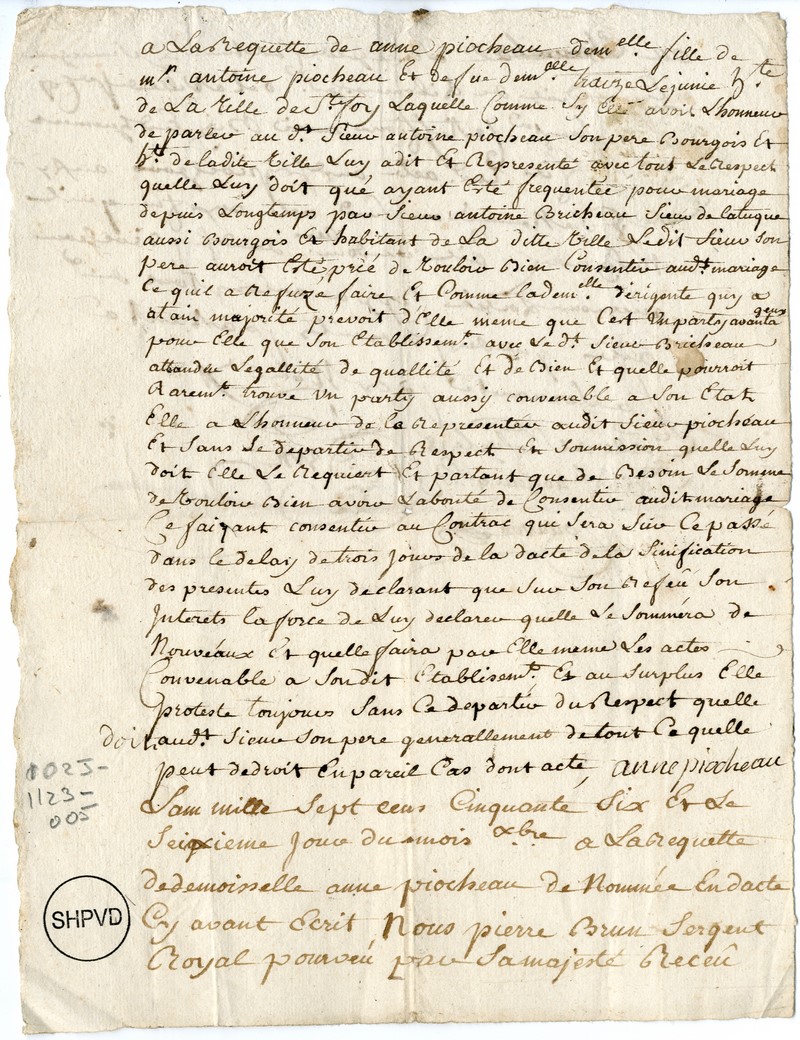 a La Requette de anne piocheau demelle fille de
mr. antoine piocheau Et de fue demelle Lejunie hte
de La Ville de Ste foy Laquelle Comme Sy Elle avoit Lhonneur
de parler au dt. Sieur antoine piocheau Son pere Bourgois Et
ht. de ladite Ville Luy a dit Et Representé avec tout Le Respect
quelle Luy doit qué ayant Esté frequentée pour mariage
depuis Longtemps par Sieur antoine Bricheau Sieur de latuque
aussi Bourgois Et habitant de La ditte Ville Ledit Sieur Son
pere auroit Esté prié de Vouloir Bien Consentir audt. mariage
Ce quil a Refuzé faire Et Comme lademelle dirigente quy a
atain majorité prevoit d'Elle meme que C'est Un party avantageux
pour Elle que Son Etablissemt. avec Le dt. Sieur Bricheau
attandeu Legallité de quallité Et de Bien Et quelle pourroit
Raremt. trouvé un party aussy convenable a Son Etat
Elle a Lhonneur de le Representer audit Sieur piocheau
Et Sans Se departir de Respect Et Soumission quelle Luy
doit Elle Le Requiert Et partant que de Besoin Le Somme
de Vouloir Bien avoir La bonté de Consentir audit mariage
Ce faizant consentir au Contrac qui Sera Sur Ce passé
dans le delay de trois Jours de la dacte de la Sinification
des presentes Luy declarant que Sur Son Refeu Son
Interets la force de Luy declarer quelle Le Somméra de
Nouveaux Et quelle faira par Elle meme Les actes
Convenable a Sondit Etablisemt. Et au Surplus Elle
proteste toujours Sans Ce departir du Respect quelle
doit audt. Sieur Son pere generallement de tout Ce quelle
peut de droit En pareil Cas dont acte, anne piocheau
Lam mille Sept cens Cinquante Six Et Le
Seixieme Jour du mois xbre a La Requette
de demoisselle anne piocheau de Nommée En dacte
Cy avant Ecrit Nous pierre Brun Sergent
Royal pourveu par Sa majesté Receu
1023-
1123-
005
SHPVD